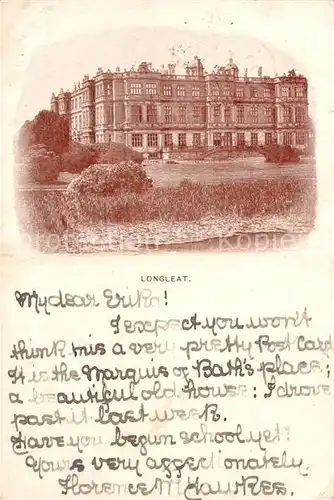 LONGLEAT.
My dear Erik!
I expect you won't
think this a very pretty Post Card
It is the Marquis of Bath's place;
a beautiful old house: I drove
past it last week.
Have you begun school yet?
Yours very affectionately,
Florence M